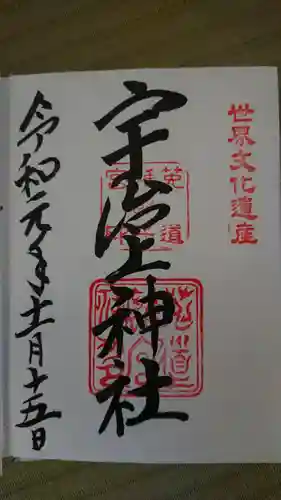 世界文化遺産
宇治上神社
令和元年十一月十五日